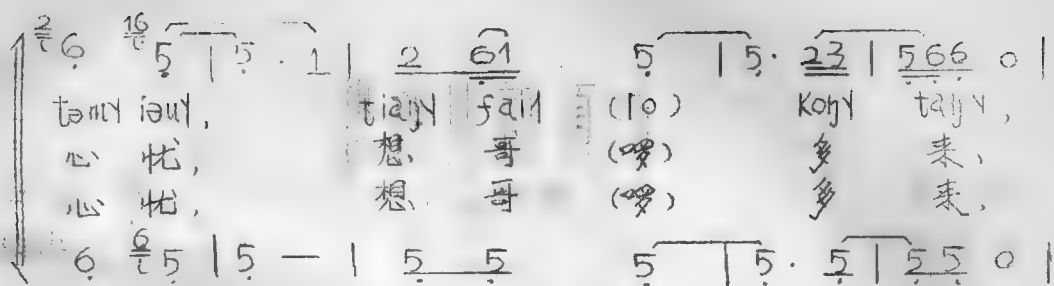 2 6 16 5 | 5 · 1 | 2 61 5 | 5 · 23 | 566 0 |
təmY iəuY, tiaŋY faiY (lo) KoŋY taŋY,
心 忧, 想 哥 (啰) 多 来,
心 忧, 想 哥 (啰) 多 来,
6 6 5 | 5 — | 5 5 5 | 5 · 5 | 55 0 |